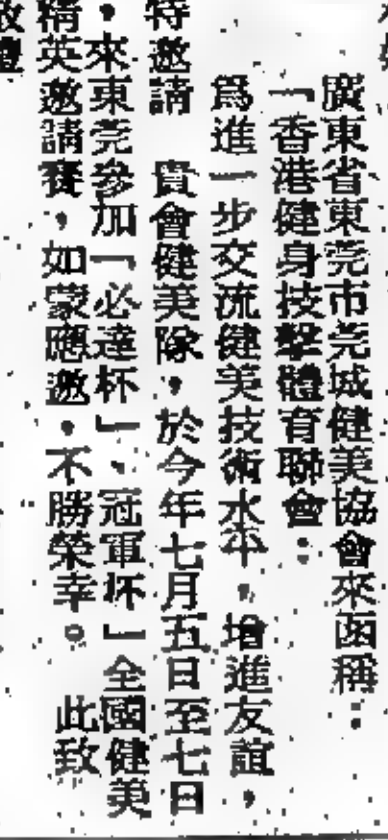 廣東省東莞市莞城健美協會來函稱：
「香港健身技擊體育聯會：
爲進一步交流健美技術水平，增進友誼，
特邀請　貴會健美隊，於今年七月五日至七日
，來東莞參加「必達杯」、冠軍杯」全國健美
精英邀請賽，如蒙應邀，不勝榮幸。　此致
敬禮